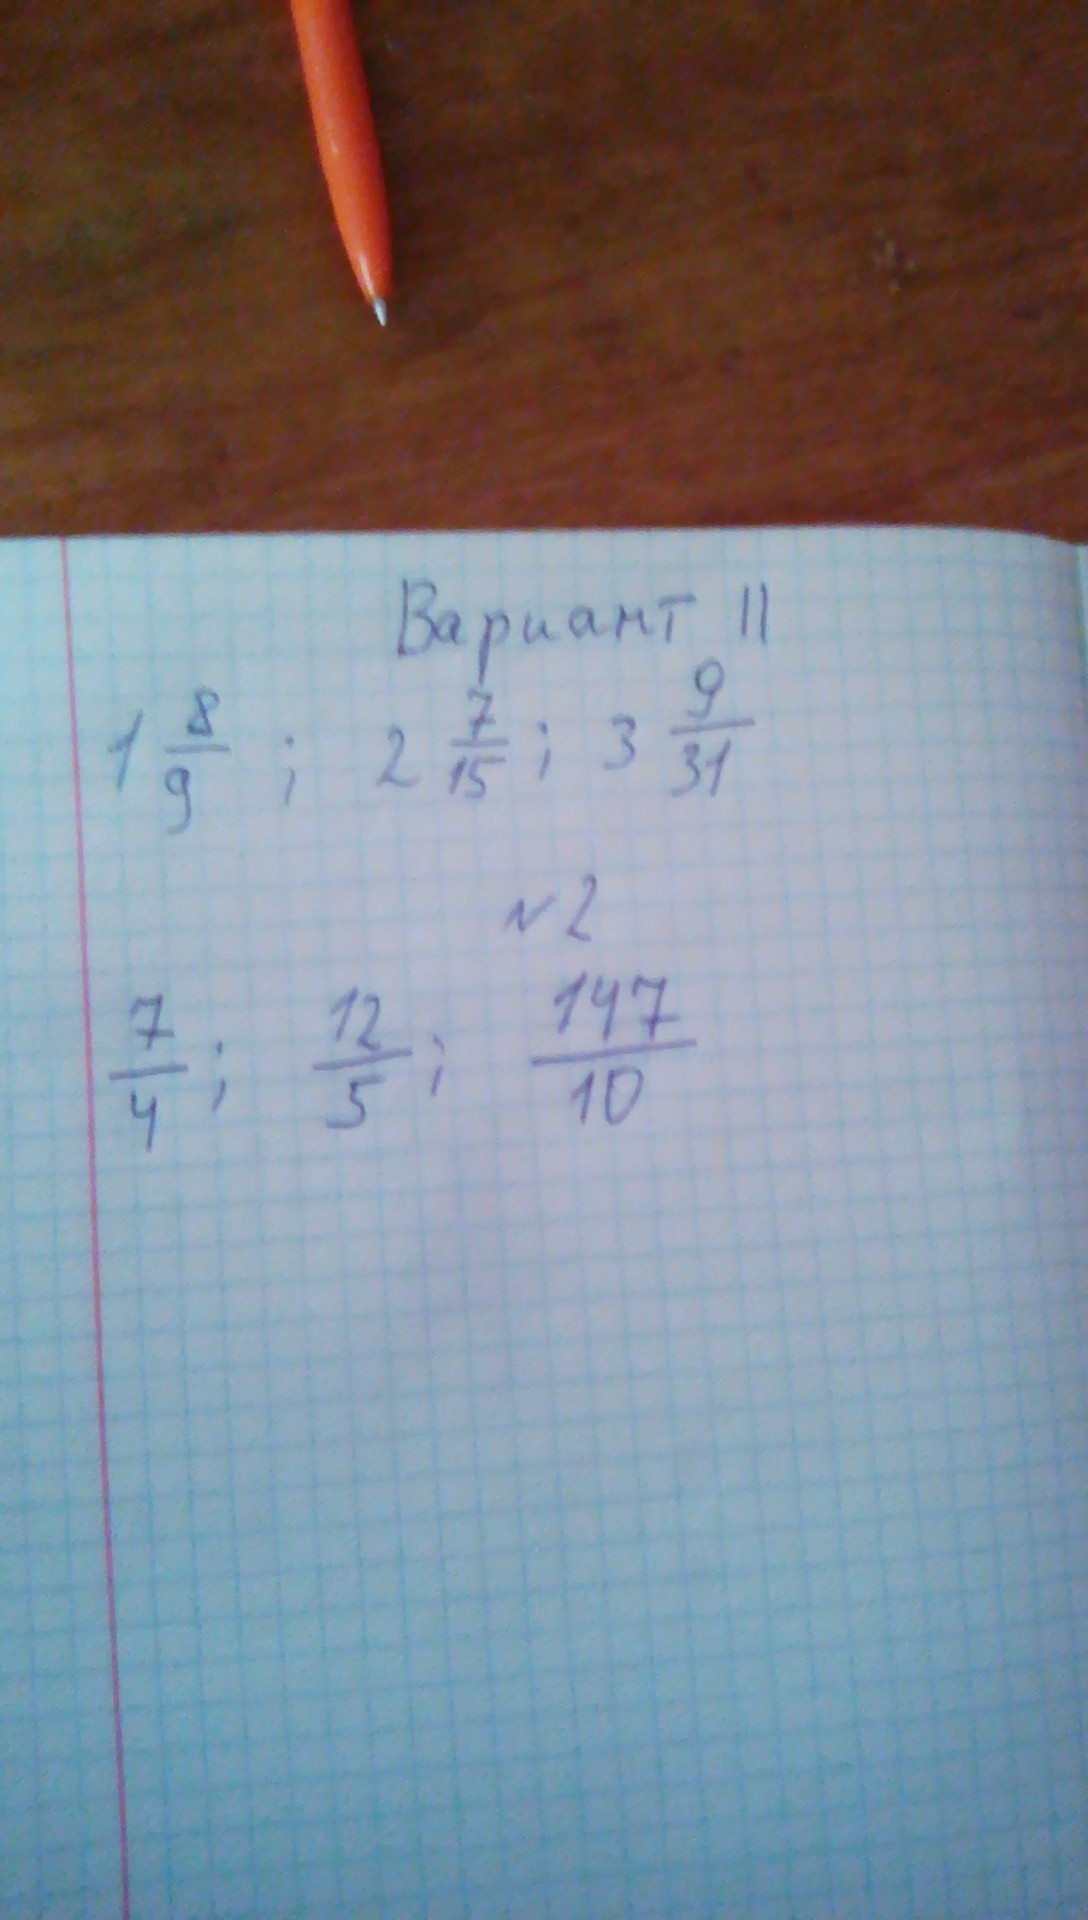 Вариант II
1 8/9 ; 2 7/15 ; 3 9/31
№2
7/4 ; 12/5 ; 147/10